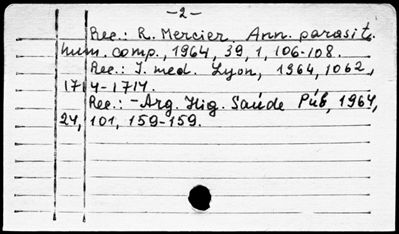 -2-
Rec.: R. Mercier. Ann. parasit.
hum. comp., 1964, 39, 1, 106-108.
Rec.: J. med. Lyon, 1964, 1062,
1714-1714.
Rec.: -Arg. Hig. Saúde Púb, 1964,
24, 101, 159-159.